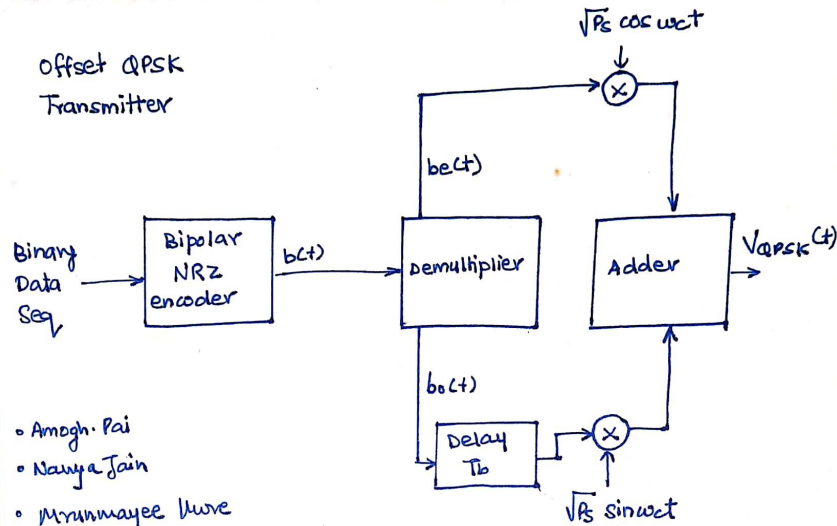 √Ps cos wct
Offset QPSK
Transmitter
be(t)
Binary
Data
Seq
Bipolar
NRZ
encoder
b(t)
Demultiplier
Adder
VQPSK(t)
bo(t)
Delay
Tb
√Ps sinwct
• Amogh. Pai
• Navya Jain
• Mrunmayee